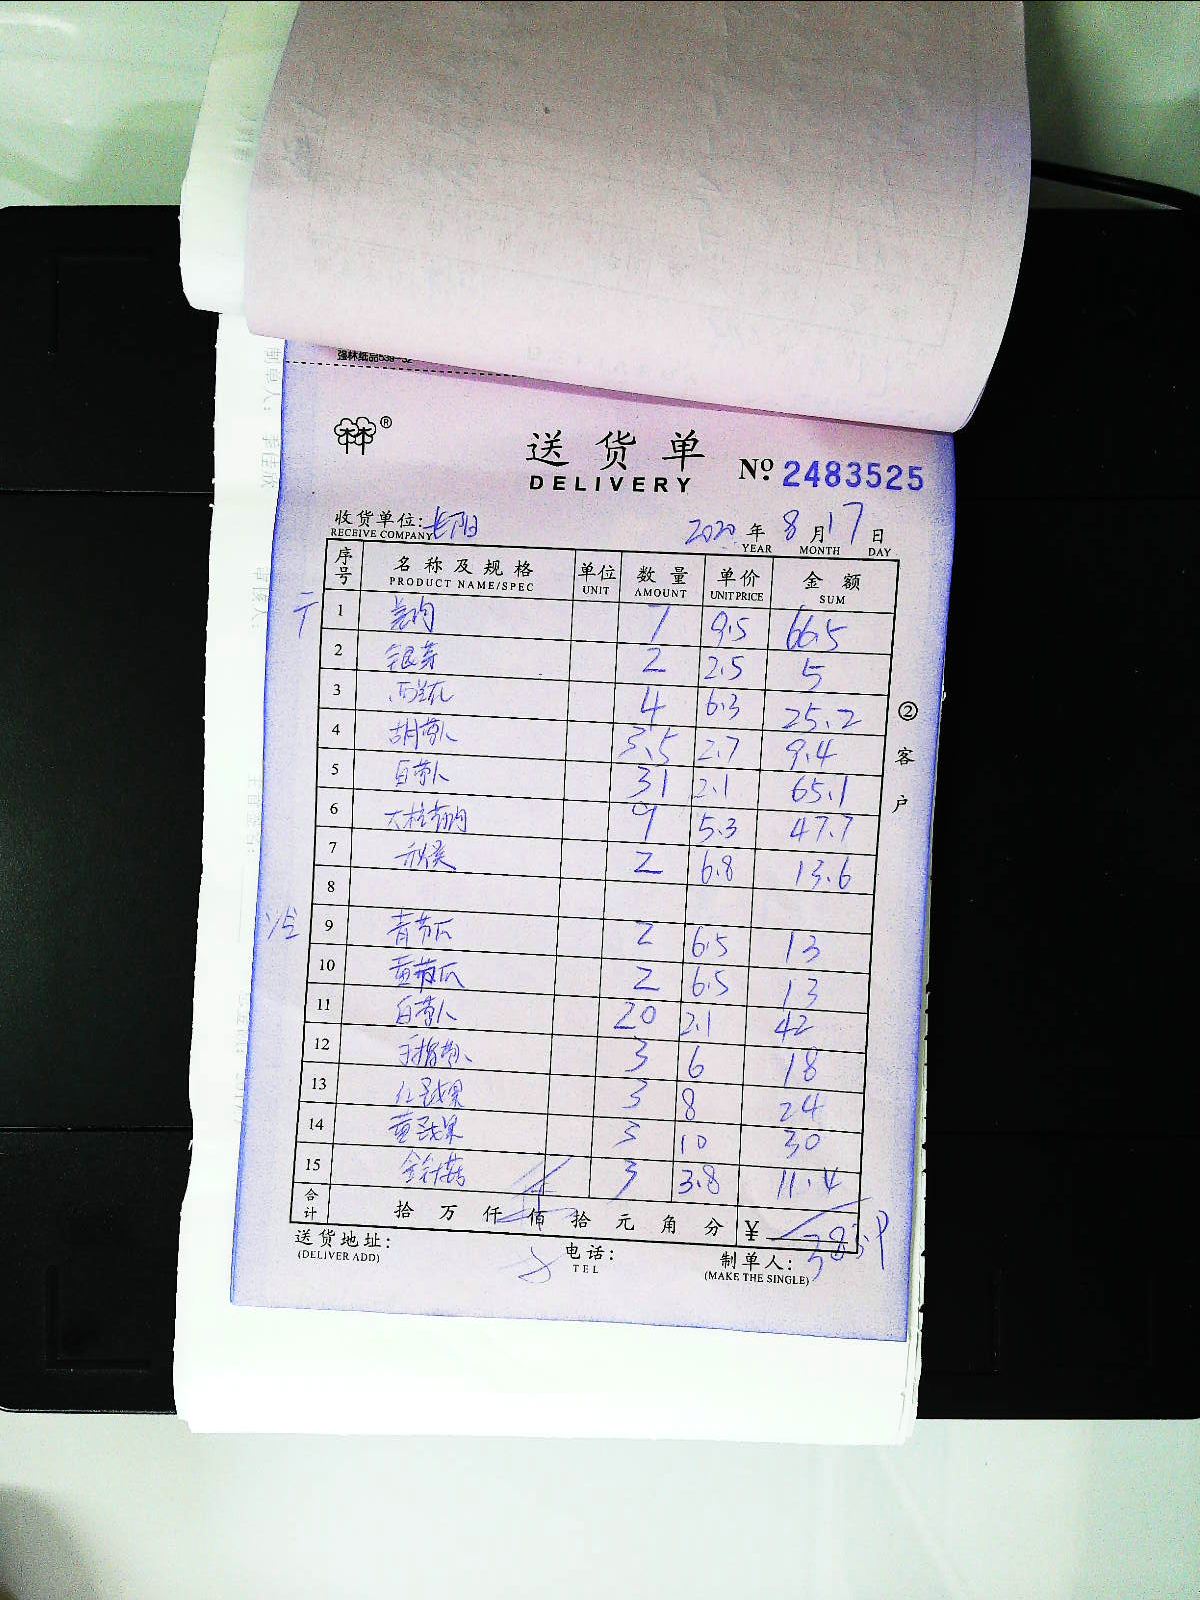 强林纸品539-32
林®
送货单
DELIVERY
No. 2483525
收货单位: 长阳
RECEIVE COMPANY
2020 年 8 月 17 日
YEAR MONTH DAY
序号 名称及规格 单位 数量 单价 金额
PRODUCT NAME/SPEC UNIT AMOUNT UNIT PRICE SUM
1 7 9.5 66.5
2 银芽 2 2.5 5
3 西兰花 4 6.3 25.2
4 胡萝卜 3.5 2.7 9.4
5 白萝卜 31 2.1 65.1
6 9 5.3 47.7
7 秋葵 2 6.8 13.6
8
9 青节瓜 2 6.5 13
10 黄节瓜 2 6.5 13
11 白萝卜 20 2.1 42
12 手指萝卜 3 6 18
13 红圣女果 3 8 24
14 黄圣女果 3 10 30
15 金针菇 3 3.8 11.4
合计 拾 万 仟 佰 拾 元 角 分 ¥
②客户
送货地址:
(DELIVER ADD)
电话:
TEL
制单人:
(MAKE THE SINGLE)